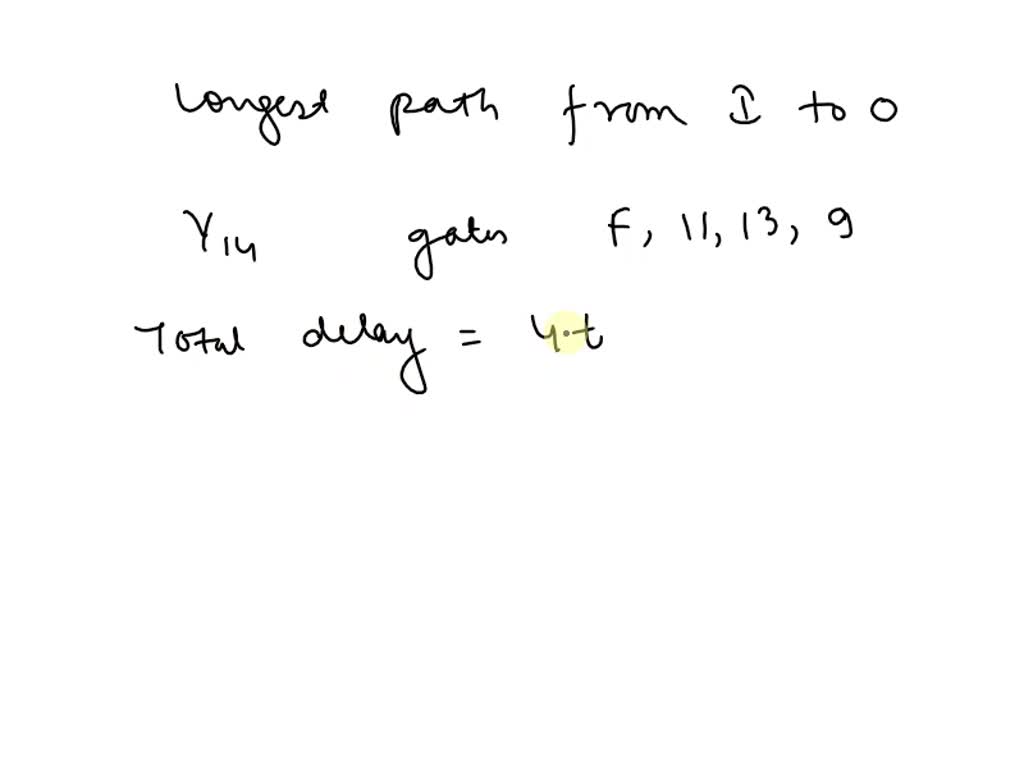 Longest path from I to O
Y14 gates F, 11, 13, 9
Total delay = 4.t